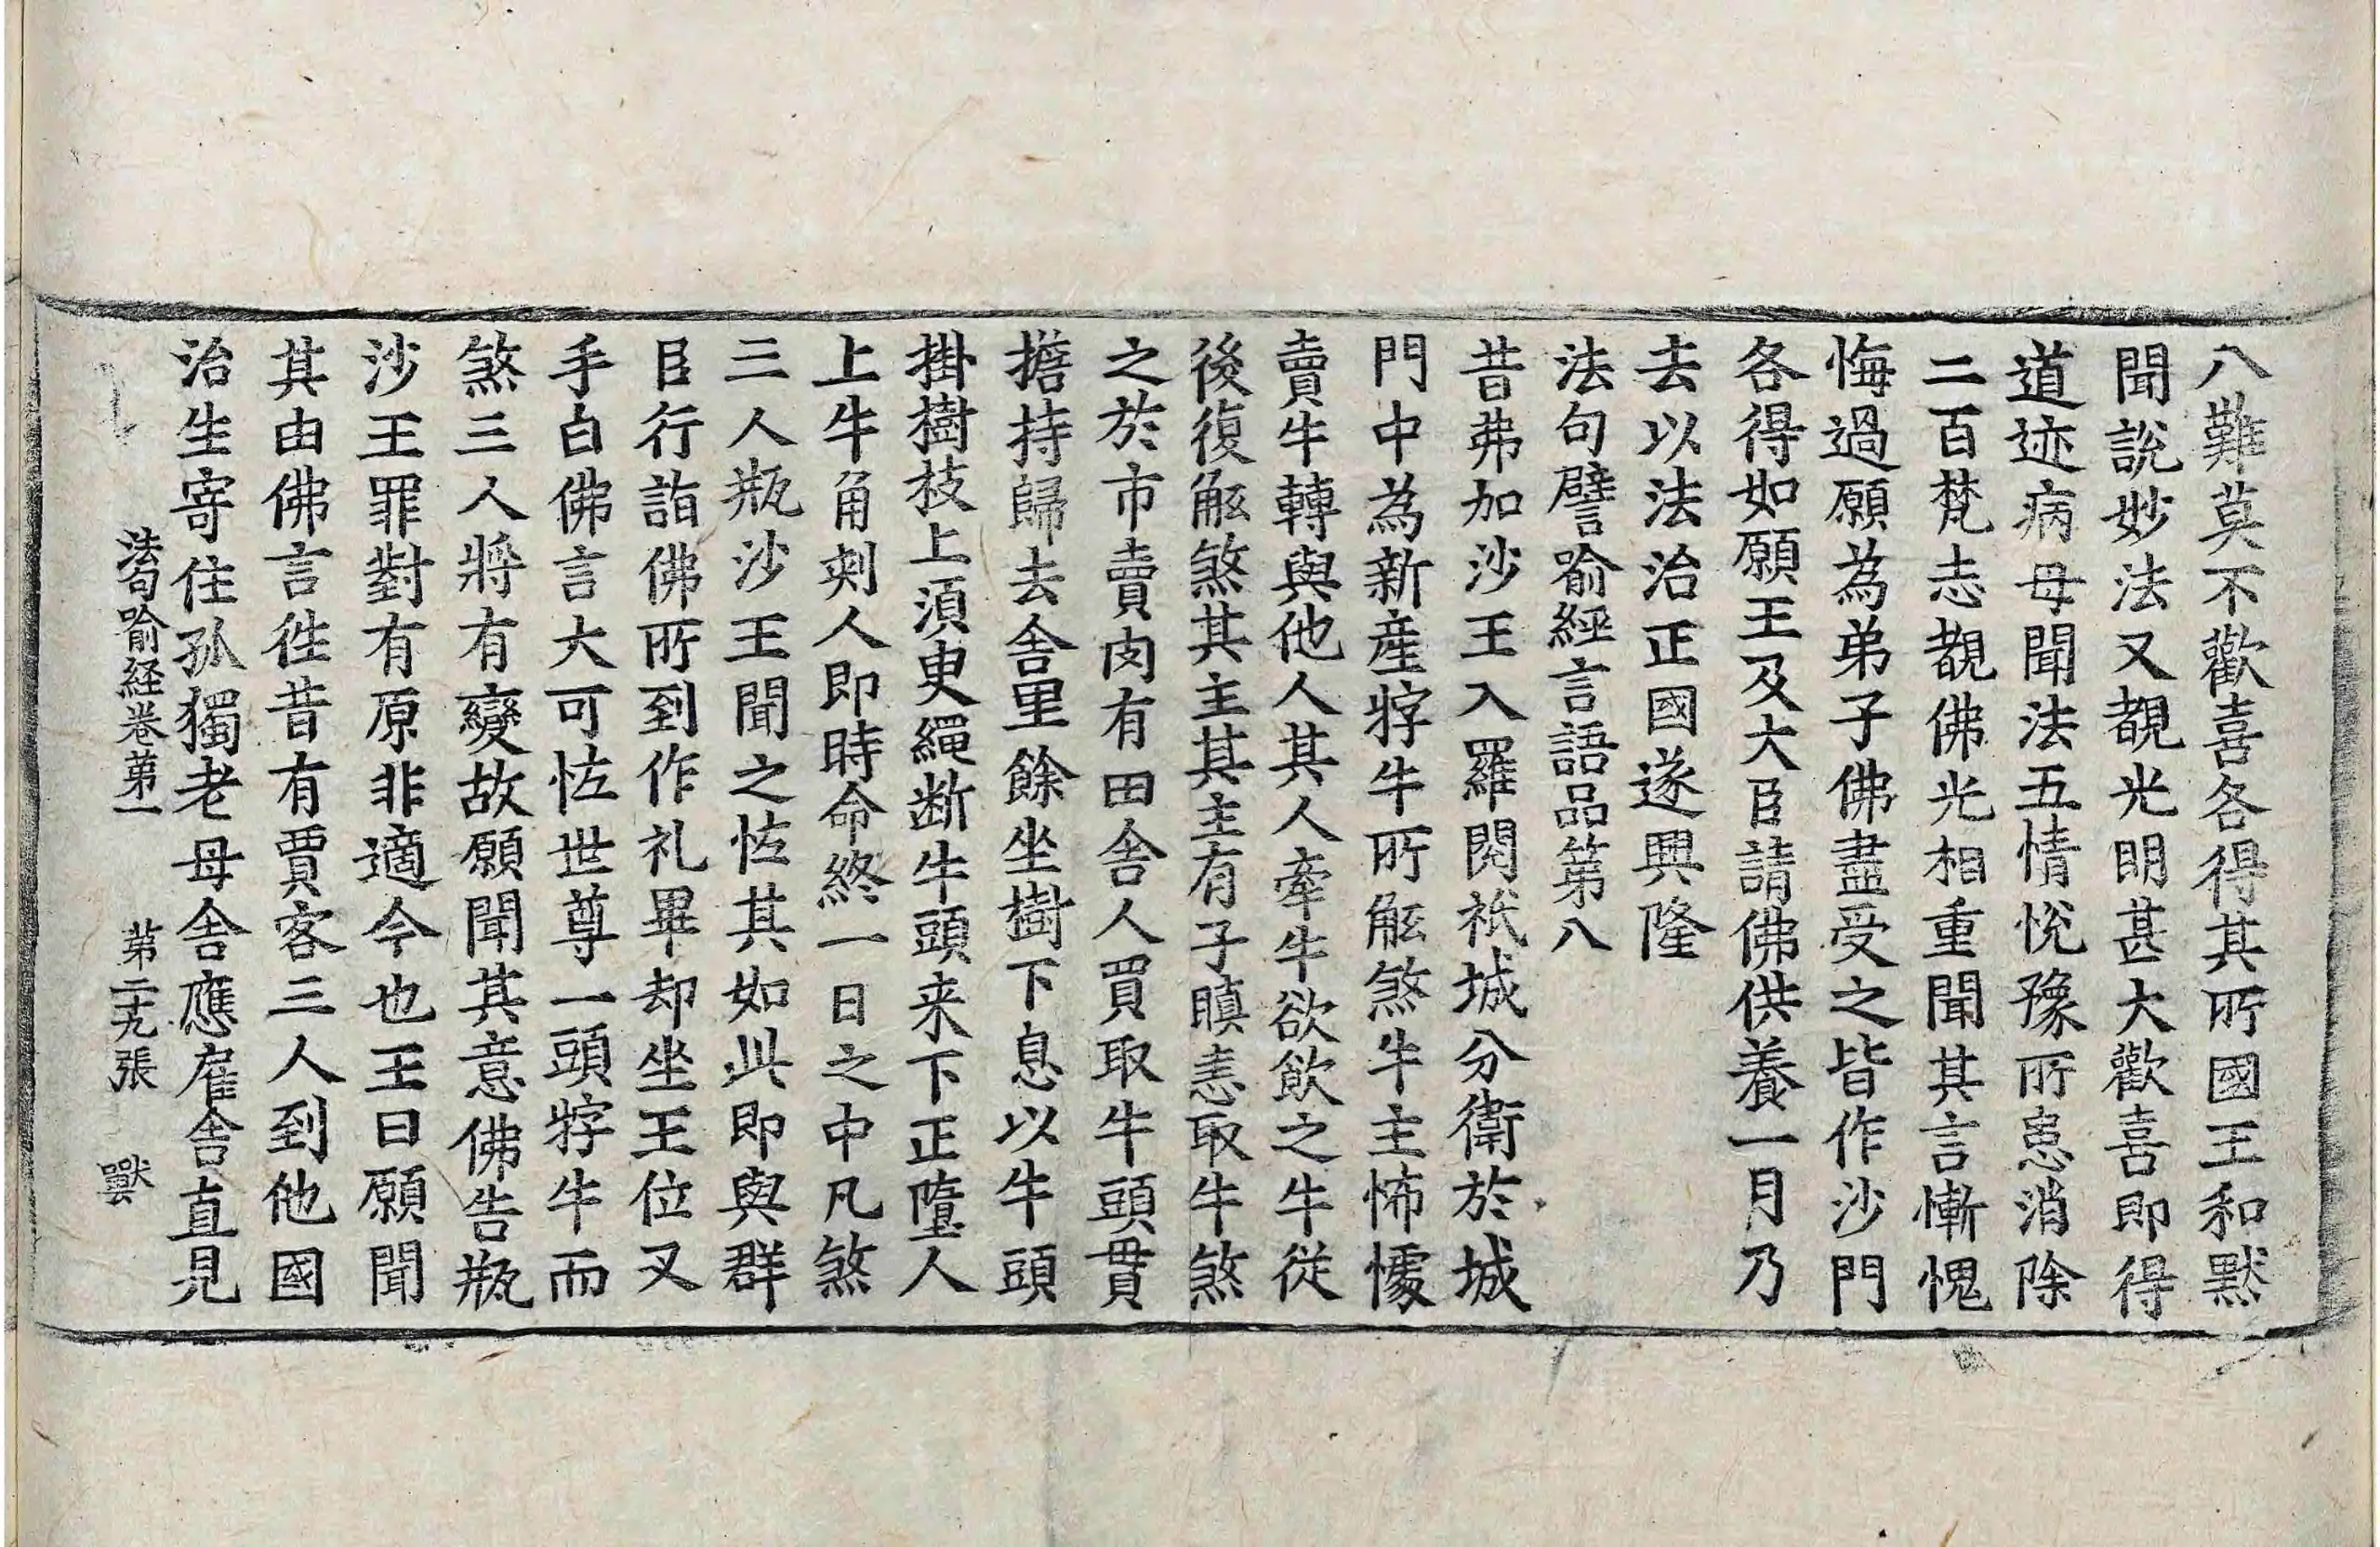 八難莫不歡喜各得其所國王和默
聞說妙法又覩光明甚大歡喜即得
道迹病母聞法五情悅豫所患消除
二百梵志覩佛光相重聞其言慚愧
悔過願為弟子佛盡受之皆作沙門
各得如願王及大臣請佛供養一月乃
去以法治正國遂興隆
法句譬喻經言語品第八
昔弗加沙王入羅閱祇城分衛於城
門中為新產牸牛所觝煞牛主怖懅
賣牛轉與他人其人牽牛欲飲之牛從
後復觝煞其主其主有子瞋恚取牛煞
之於市賣肉有田舍人買取牛頭貫
擔持歸去舍里餘坐樹下息以牛頭
掛樹枝上湏臾繩断牛頭来下正墮人
上牛角刾人即時命終一日之中凡煞
三人瓶沙王聞之恠其如此即與群
臣行詣佛所到作礼畢却坐王位叉
手白佛言大可恠世尊一頭牸牛而
煞三人將有變故願聞其意佛告瓶
沙王罪對有原非適今也王曰願聞
其由佛言徃昔有賈客三人到他國
治生寄住孤獨老母舍應雇舍直見
法句喻経卷第一 第二十九張 獸